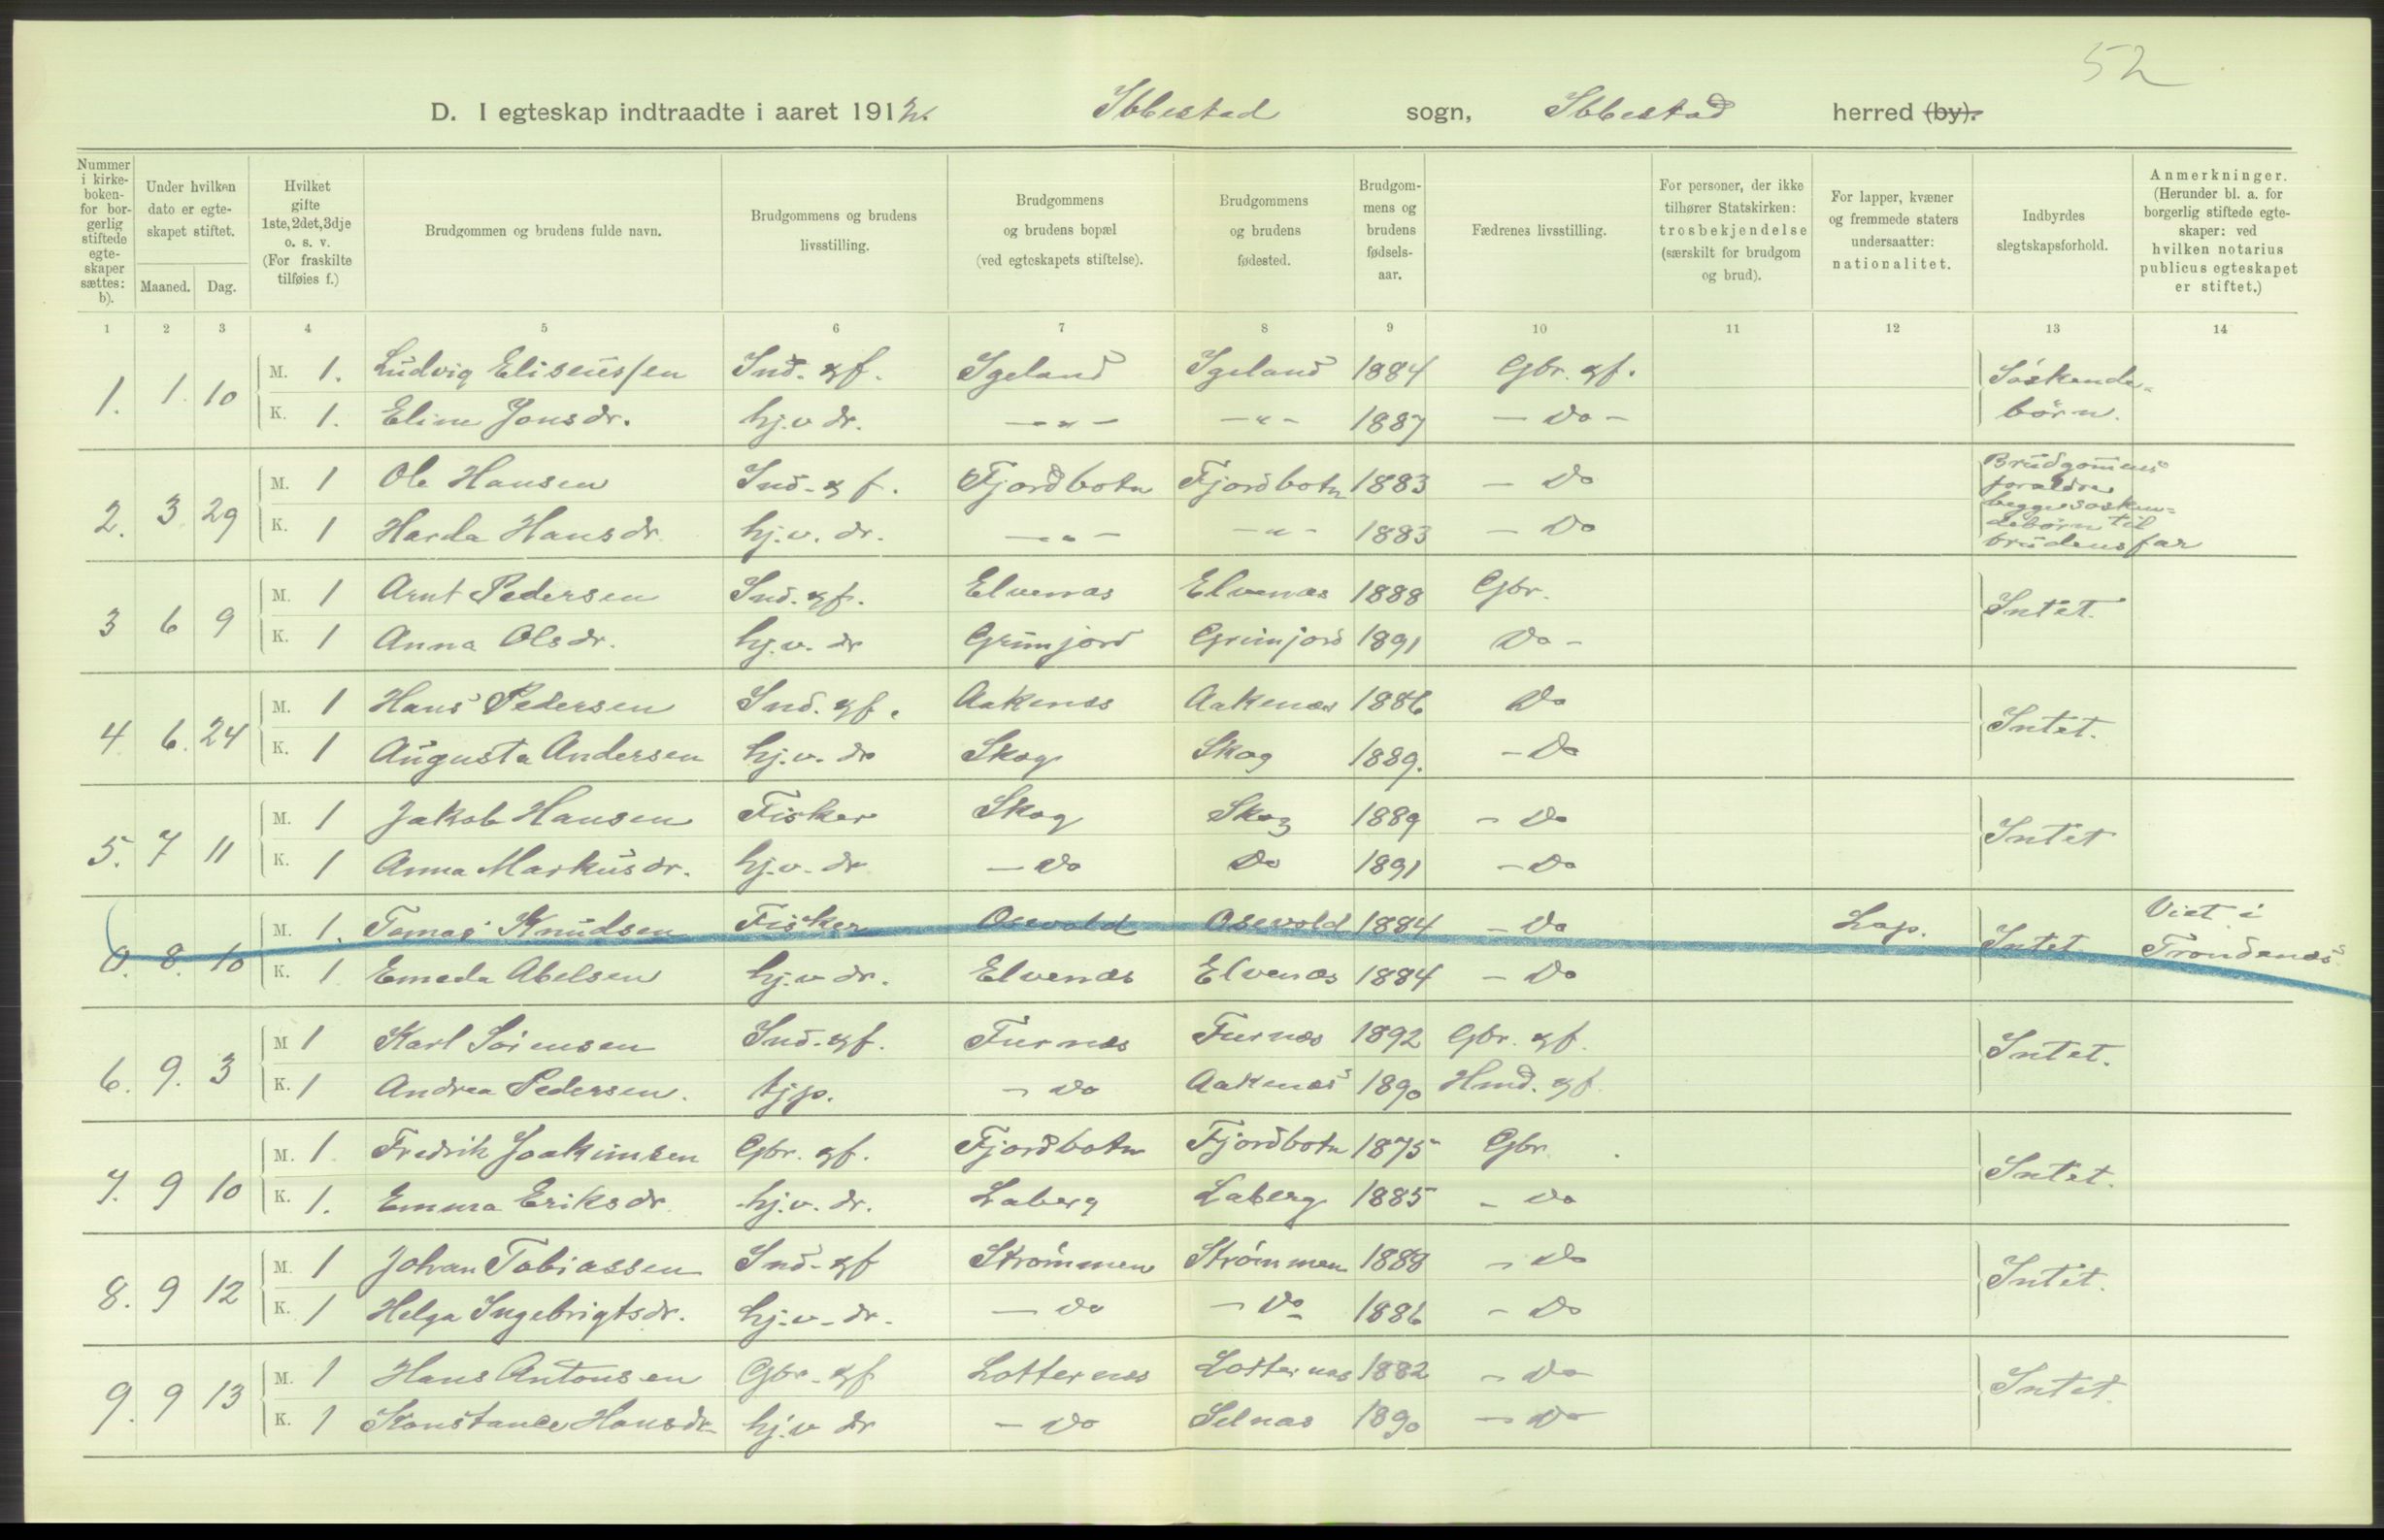 52
D. I egteskap indtraadte i aaret 1912. Ibbestad sogn, Ibbestad herred (by).
Nummer i kirkeboken- for borgerlig stiftede egteskaper sættes: b).
Under hvilken dato er egteskapet stiftet.
Maaned. Dag.
Hvilket gifte 1ste, 2det, 3dje o. s. v. (For fraskilte tilføies f.)
Brudgommen og brudens fulde navn.
Brudgommens og brudens livsstilling.
Brudgommens og brudens bopæl (ved egteskapets stiftelse).
Brudgommens og brudens fødested.
Brudgommens og brudens fødselsaar.
Fædrenes livsstilling.
For personer, der ikke tilhører Statskirken: trosbekjendelse (særskilt for brudgom og brud).
For lapper, kvæner og fremmede staters undersaatter: nationalitet.
Indbyrdes slegtskapsforhold.
Anmerkninger. (Herunder bl. a. for borgerlig stiftede egteskaper: ved hvilken notarius publicus egteskapet er stiftet.)
1 2 3 4 5 6 7 8 9 10 11 12 13 14
1. 1. 10 M. 1. Ludvig Eliseussen Ind. gf. Igeland Igeland 1884 Gbr. gf. Söskende-
K. 1. Eline Jonsdr. hj.v dr. — " — — " — 1887 — Do — börn.
2. 3 29 M. 1 Ole Hansen Ind. gf. Fjordbotn Fjordbotn 1883 — Do Brudgommens foraldre begge sosken=
K. 1 Harda Hansdr. hj.v. dr. — " — — " — 1883 — Do debörn til brudens far
3 6 9 M. 1 Arnt Pedersen Ind. gf. Elvenæs Elvenæs 1888 Gbr. Intet.
K. 1 Anna Olsdr. hj.v. dr Grimjord Grimjord 1891 Do —
4 6. 24 M. 1 Hans Pedersen Ind. gf. Aakenes Aakenæs 1886 Do Intet.
K. 1 Augusta Andersen hj.v. dr Skog Skog 1889. — Do
5. 7 11 M. 1 Jakob Hansen Fisker Skog Skog 1889 — Do Intet
K. 1 Anna Markusdr. hj.v. dr — Do Do 1891 — Do
0. 8. 10 M. 1. Tomas Knudsen Fisker Osevold Osevold 1884 — Do Lap. Intet Viet i
K. 1 Emeda Abelsen hj.v dr. Elvenæs Elvenæs 1884 — Do Trondenæs
6. 9. 3 M 1 Karl Sörensen Ind. gf. Furnes Furnæs 1892 Gbr. gf. Intet.
K. 1 Andrea Pedersen. tjp. — Do Aakenæs 1890 Hmd. gf.
7. 9 10 M. 1. Fredrik Joakimsen Gbr. gf. Fjordbotn Fjordbotn 1875 Gbr. Intet.
K. 1. Emma Eriksdr. hj.v. dr. Laberg Laberg 1885 — Do
8. 9 12 M. 1 Johan Tobiassen Ind. gf Strömmen Strömmen 1888 — Do Intet.
K. 1 Helga Ingebrigtsdr. hj.v. dr. — Do — Do 1886 — Do
9. 9 13 M. 1 Hans Antonsen Gbr. gf Lotternes Lotternes 1882 — Do Intet.
K. 1 Konstance Hansdr. hj.v dr — Do Selnæs 1890 — Do